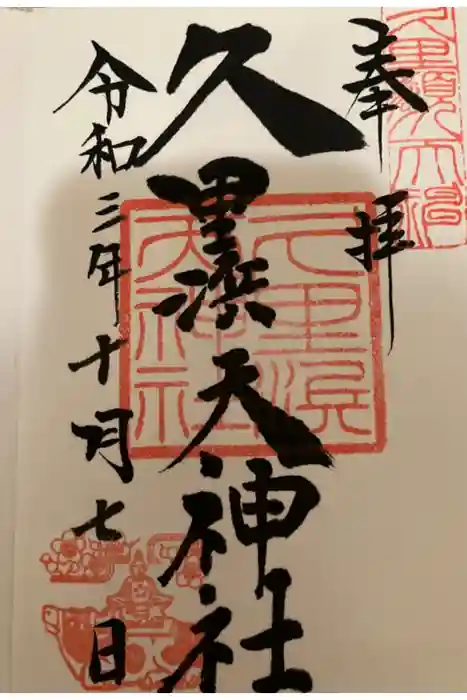 奉拝
久里濱天神社
令和三年十月七日
久里濱
天神社